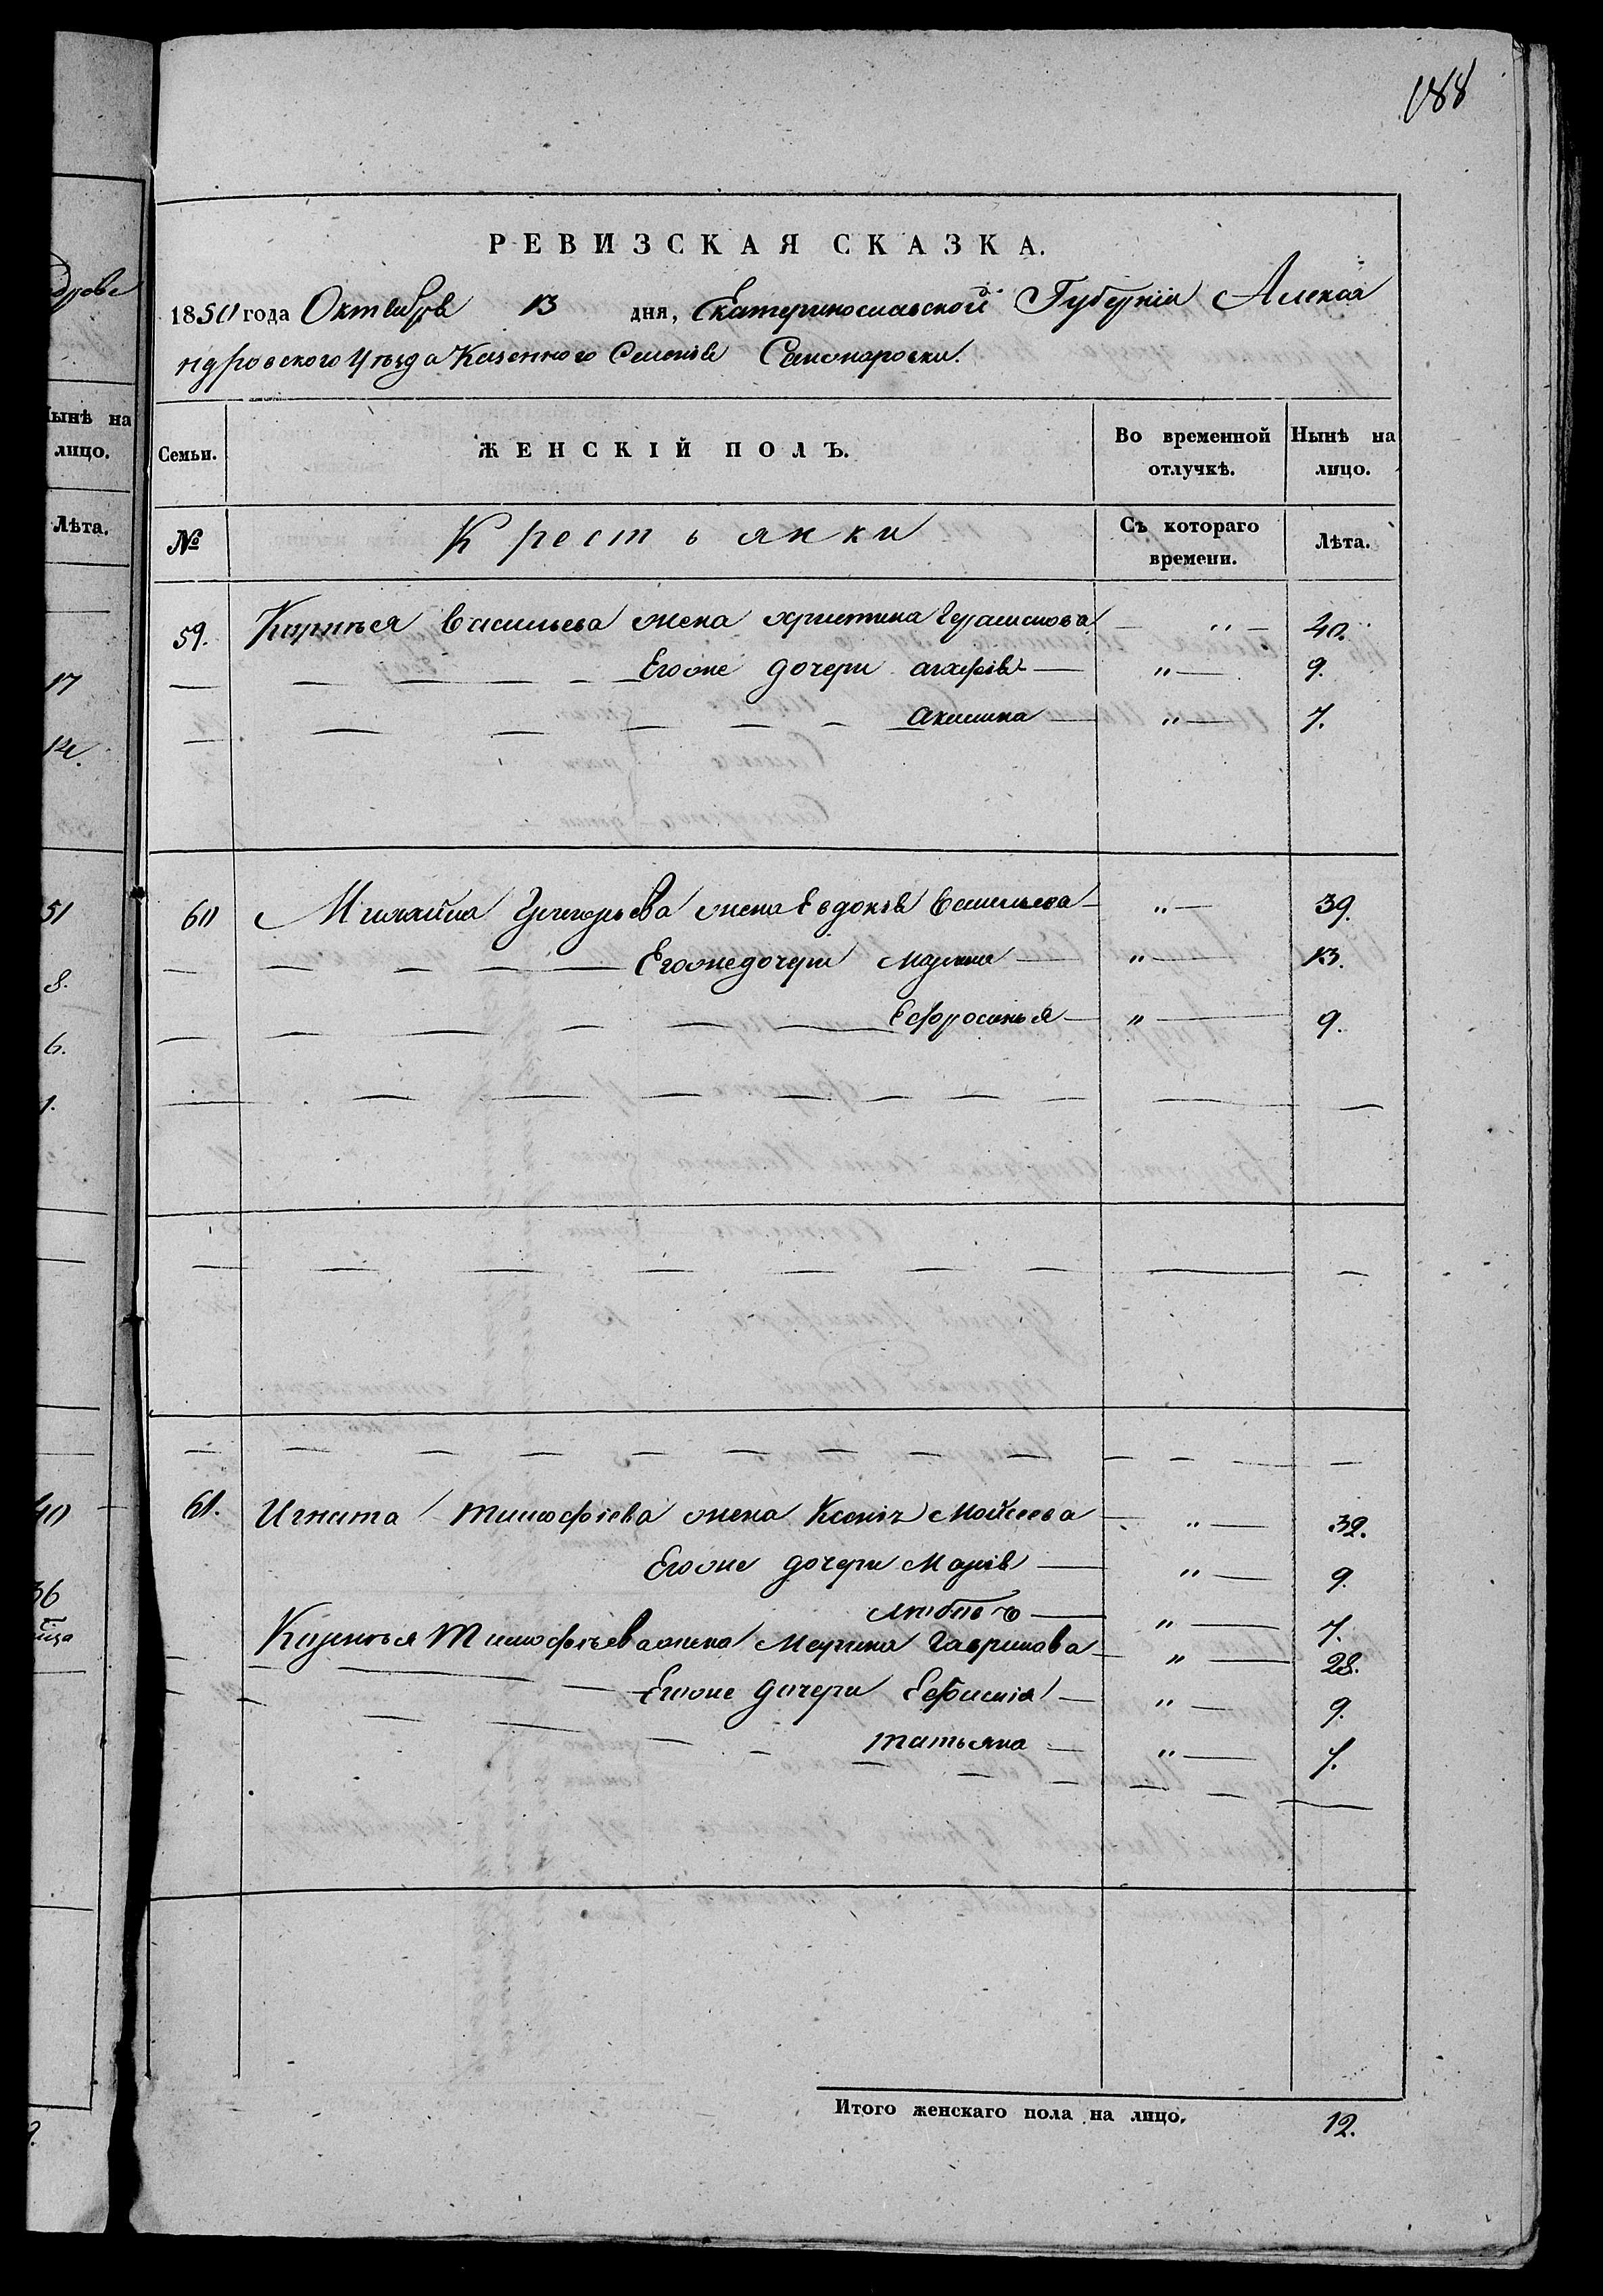 188
РЕВИЗСКАЯ СКАЗКА.
1850 года Октября 13 дня, Екатеринославской Губерніи Алекса
ндровского Уезда Казенного Селенія
Семьи. ЖЕНСКІЙ ПОЛЪ. Во временной отлучкѣ. Нынѣ на лицо.
№ Крестьянки Съ котораго времени. Лѣта.
59. Васильева жена христина Герасимова " 40.
Егоже дочери агафія " 9.
Акилина " 7.
60 Михайла Григорьева жена Евдокія Васильева " 39.
Егоже дочери Марина " 13.
Ефросинья " 9.
61. Игната Тимофіева жена Ксенія Мойсеева " 39.
Егоже дочери Марія " 9.
любовъ " 7.
Тимофѣева жена Марина Гаврилова " 28.
Егоже дочери Ефимия " 9.
татьяна " 7.
Итого женскаго пола на лицо. 12.
ынѣ на
лицо.
Лѣта.
17
51
8.
6.
1.
40
36